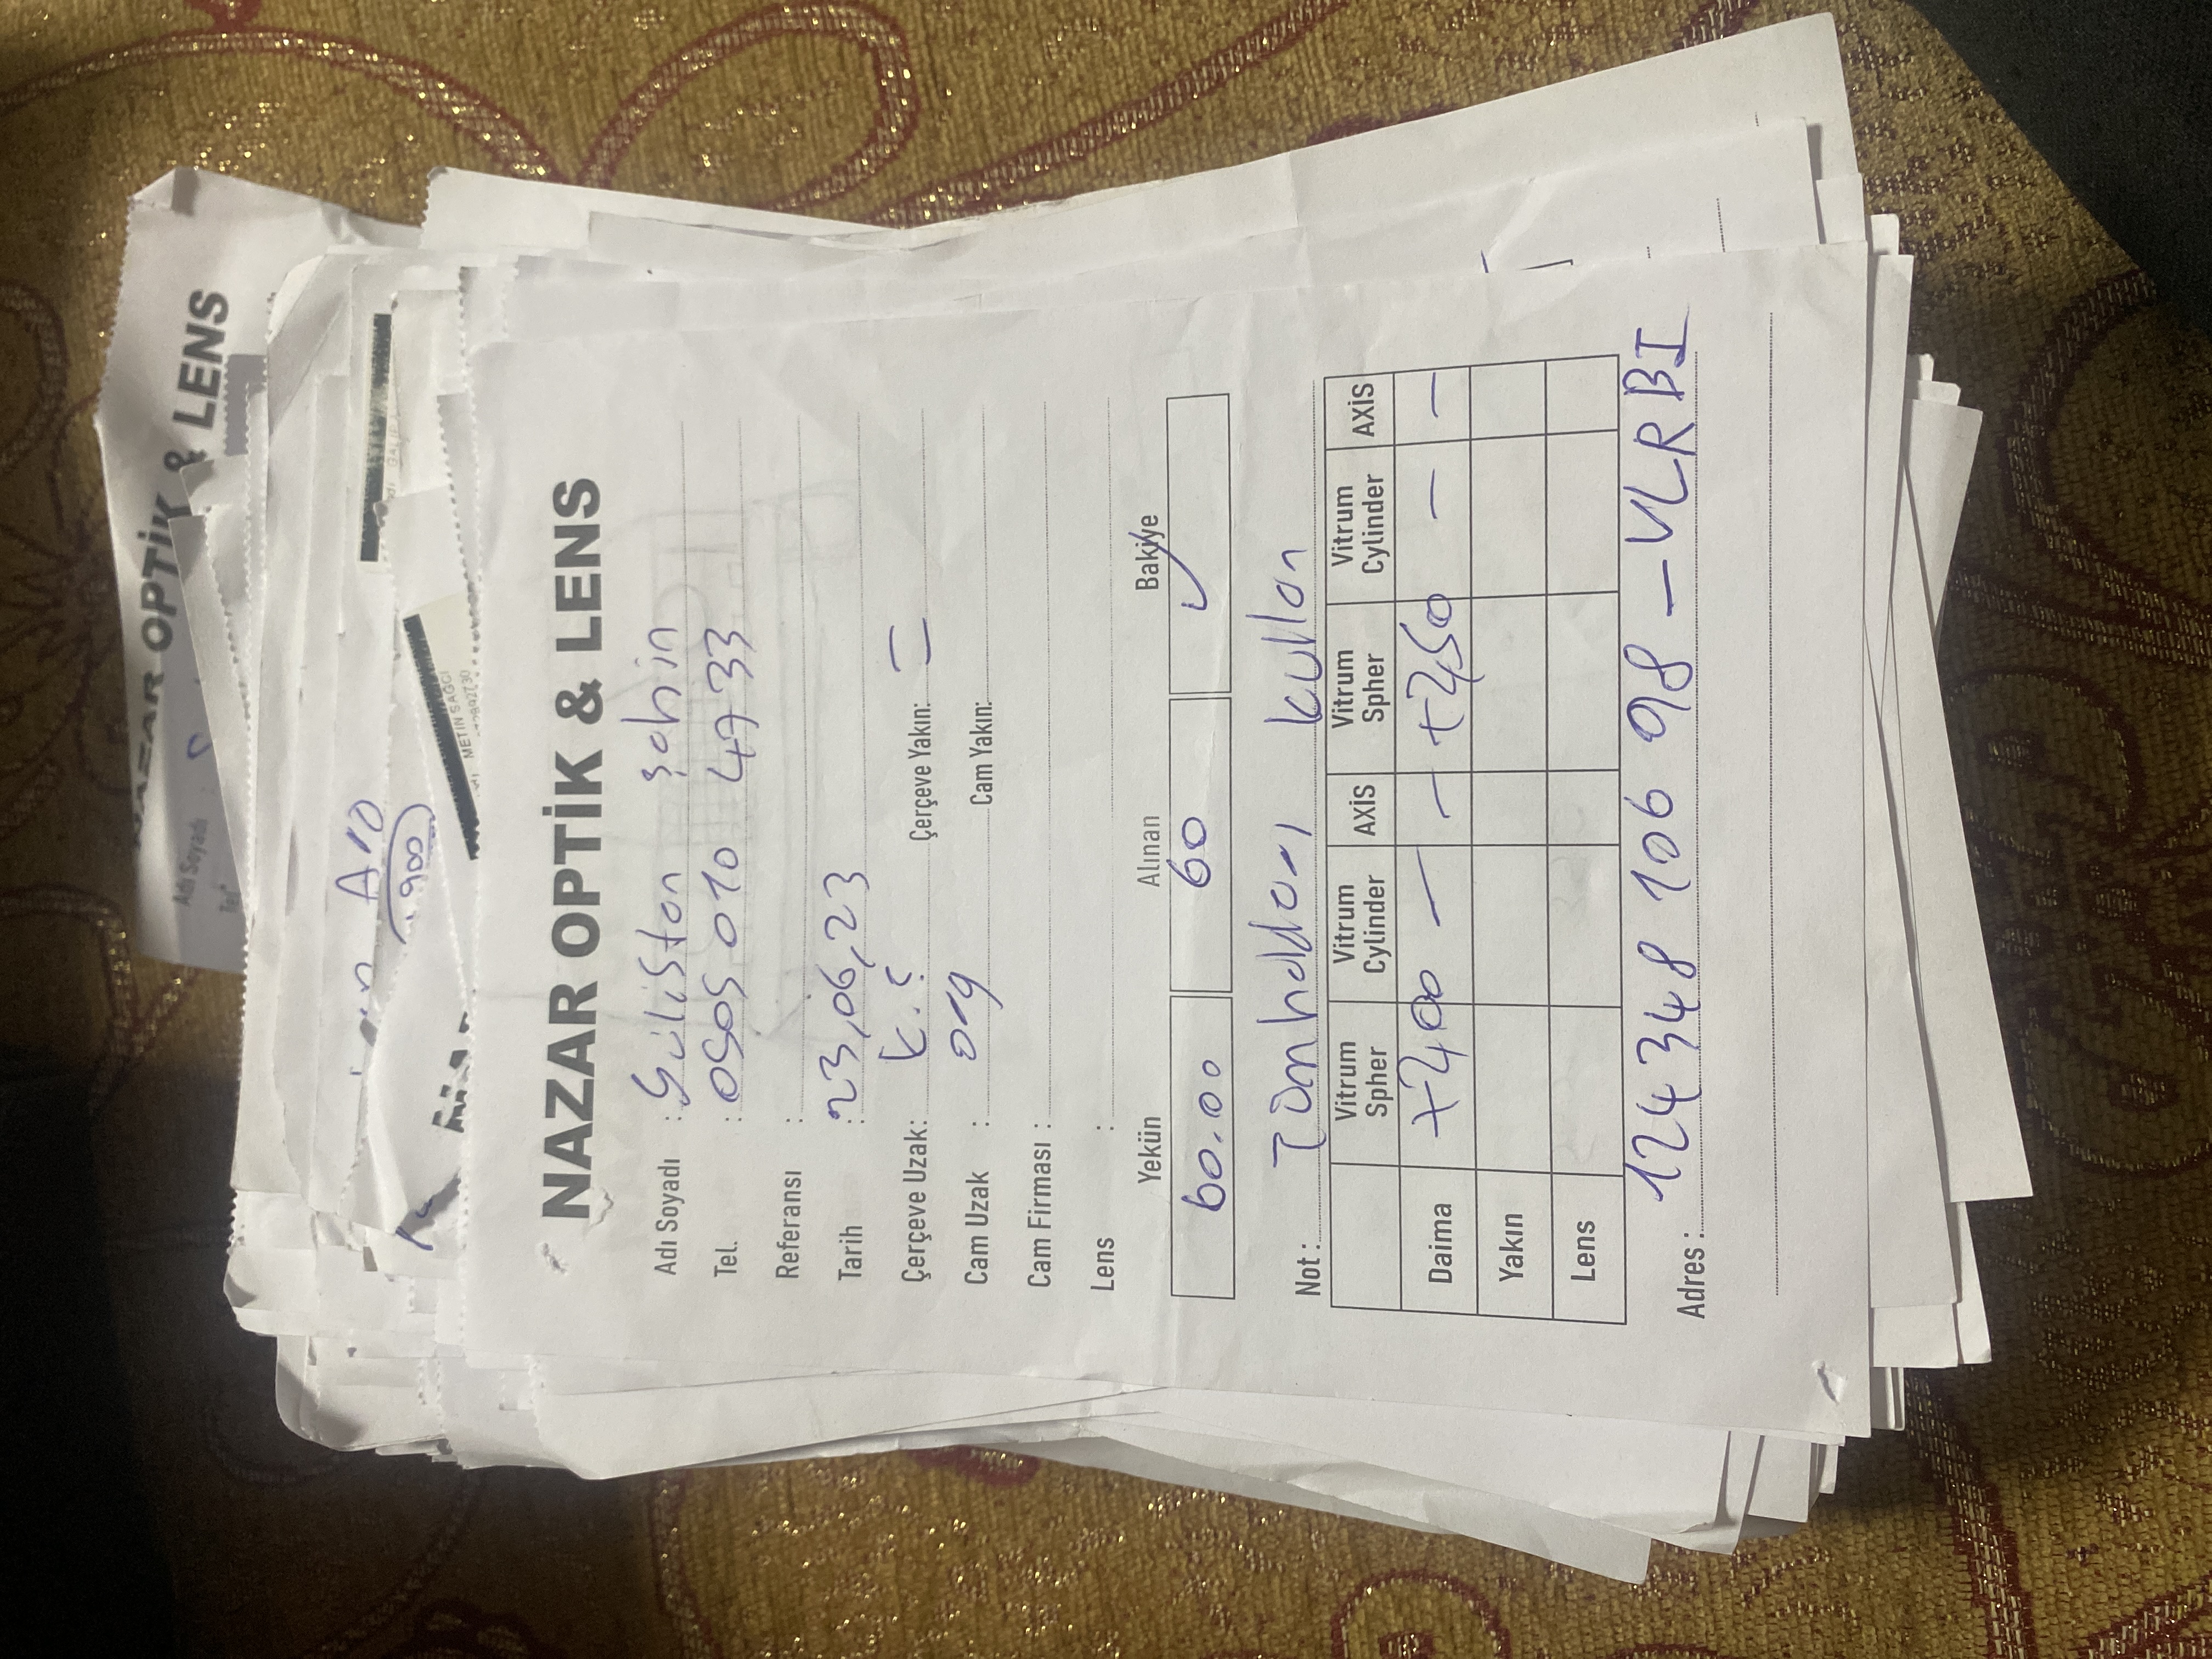 NAZAR OPTİK & LENS
Adı Soyadı :
Tel.
A10
900
METİN SAĞCI
NAZAR OPTİK & LENS
Adı Soyadı : Gülistan Şahin
Tel. : 0505 010 47 33
Referansı :
Tarih : 23,06,23
Çerçeve Uzak: K.Ç Çerçeve Yakın: =
Cam Uzak : org Cam Yakın:
Cam Firması :
Lens :
Yekün Alınan Bakiye
60.00 60 ✓
Not : Tüm haldarı kullan
Vitrum Spher Vitrum Cylinder AXİS Vitrum Spher Vitrum Cylinder AXİS
Daima +2,00 — — +2,50 — —
Yakın
Lens
Adres : 124 348 106 98 – VLRBI